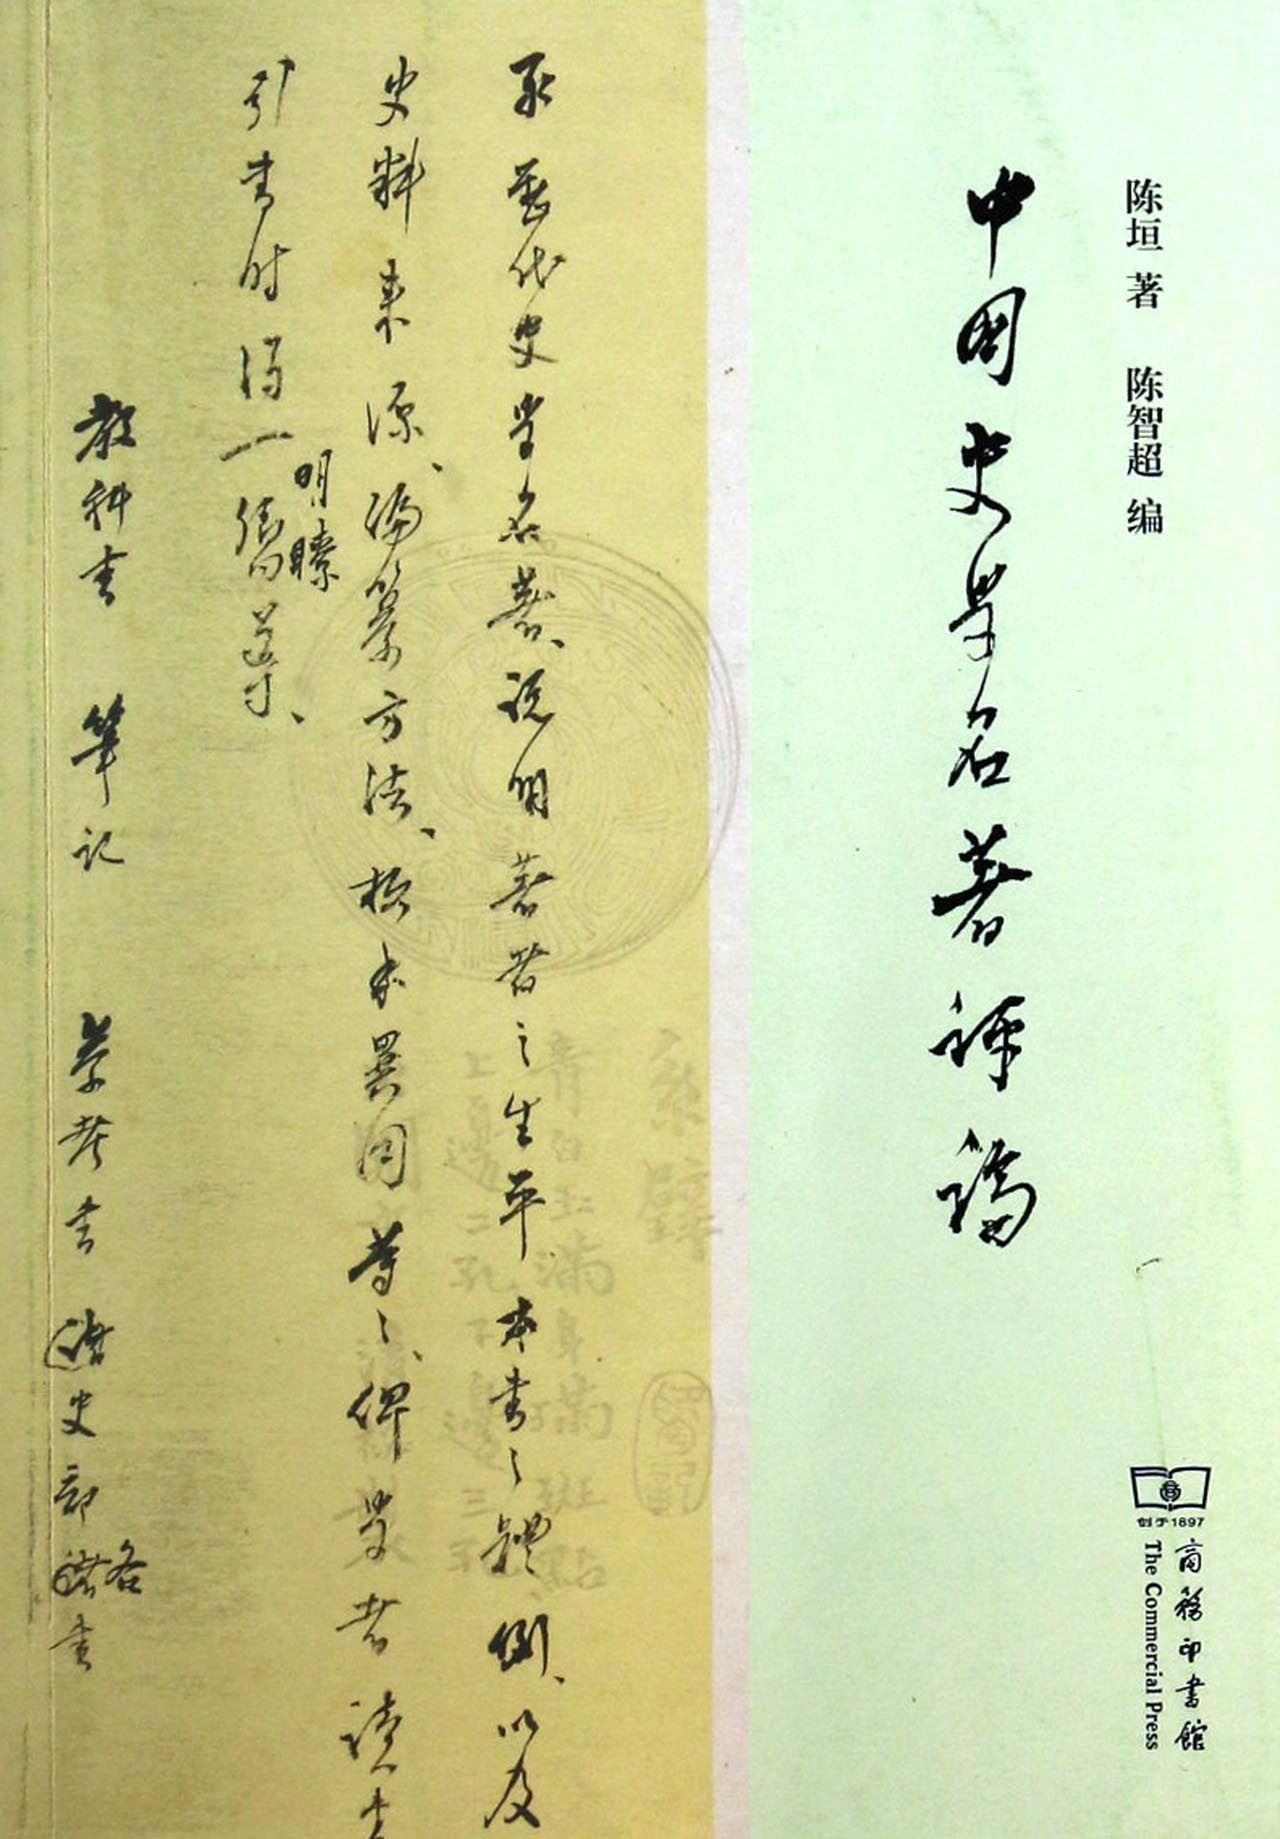 陈垣 著 陈智超 编
中国史学名著评稿
创于1897
商務印書館
The Commercial Press
取歷代史学名著、说明著者之生平 本书之體例、以及
史料来源、编纂方法、板本異同等等、俾学者读书
引书时得一明瞭嚮导、
教科书 笔记 参考书 诸史部各诸书